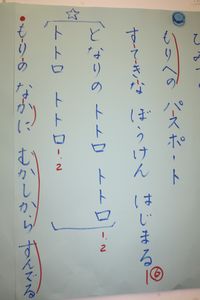 もりへの パスポート
すてきな ぼうけん はじまる
1⑥
☆
となりの トトロ トトロ
1.2
トトロ トトロ
1.2
もりの なかに むかしから すんでる